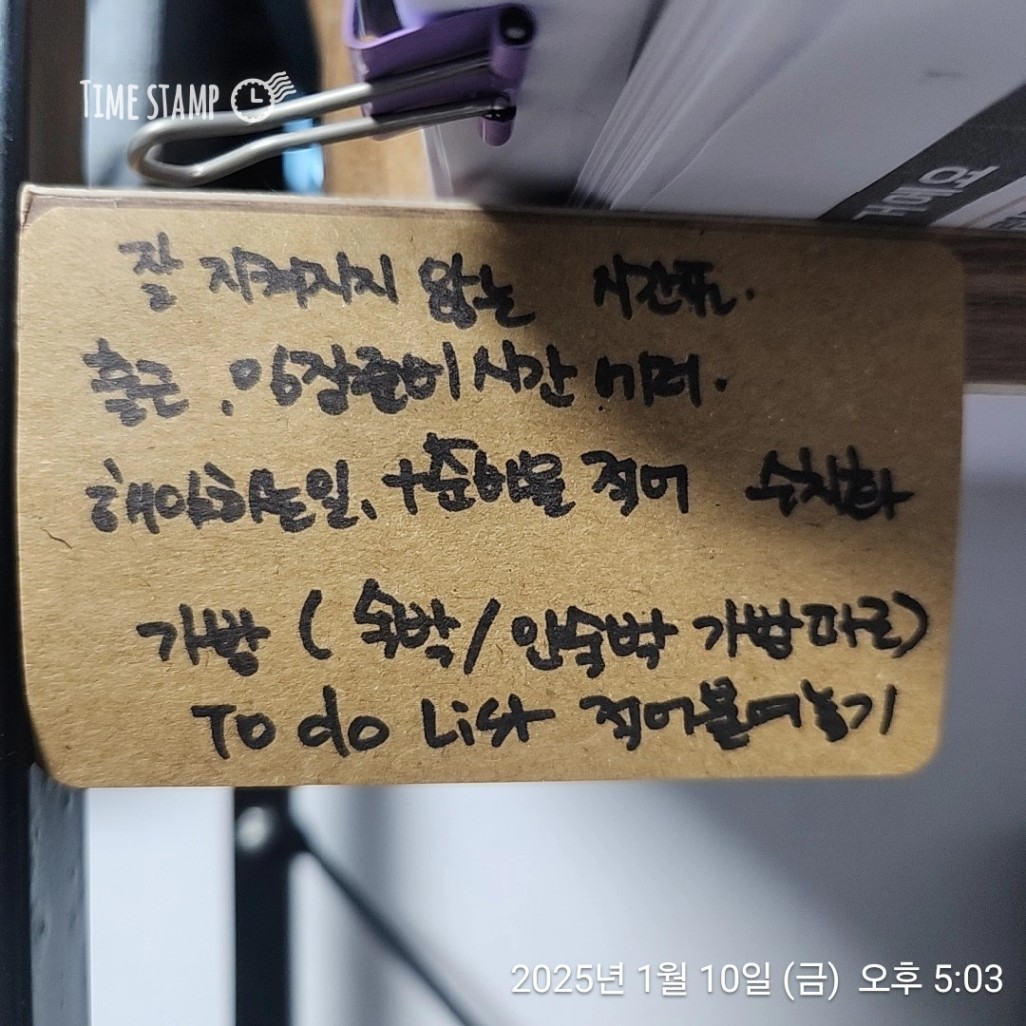 TIME STAMP
잘 지켜지지 않는 시간표.
출근. 외장줄이 시간 어겨.
해야하는일. +순서를 적어 수첩화
가방 ( 숙박/안숙박 가방따로)
To do List 적어붙여놓기
2025년 1월 10일 (금) 오후 5:03